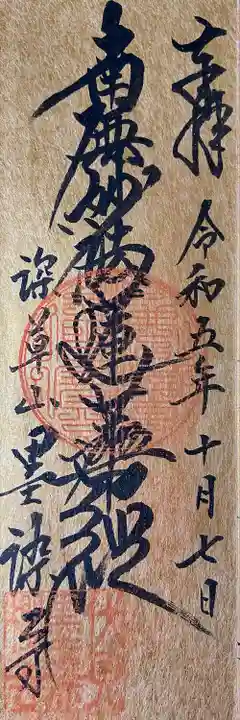 奉拝 令和五年十月七日
南無妙法蓮華経
深草山墨染寺